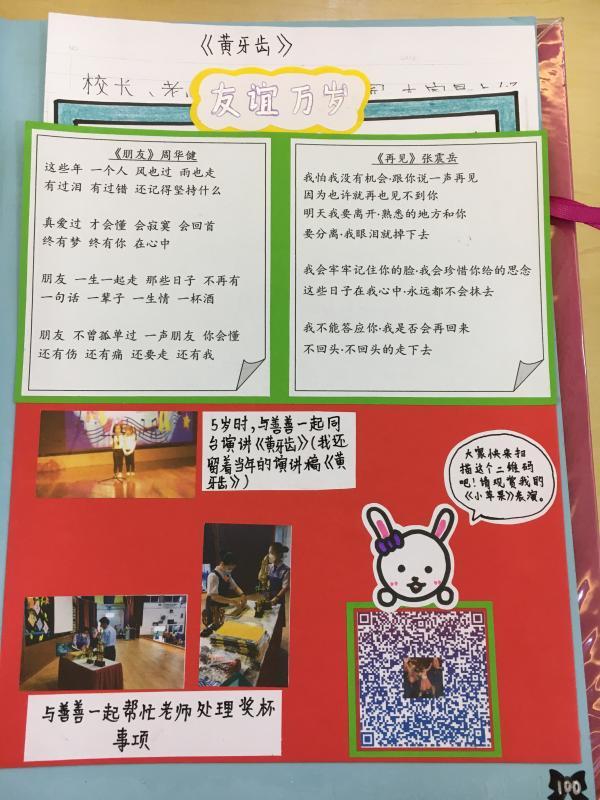 《黄牙齿》
校长、老
友谊万岁
《朋友》周华健
这些年 一个人 风也过 雨也走
有过泪 有过错 还记得坚持什么
真爱过 才会懂 会寂寞 会回首
终有梦 终有你 在心中
朋友 一生一起走 那些日子 不再有
一句话 一辈子 一生情 一杯酒
朋友 不曾孤单过 一声朋友 你会懂
还有伤 还有痛 还要走 还有我
《再见》张震岳
我怕我没有机会·跟你说一声再见
因为也许就再也见不到你
明天我要离开·熟悉的地方和你
要分离·我眼泪就掉下去
我会牢牢记住你的脸·我会珍惜你给的思念
这些日子在我心中·永远都不会抹去
我不能答应你·我是否会再回来
不回头·不回头的走下去
5岁时,与善善一起同
台演讲《黄牙齿》(我还
留着当年的演讲稿《黄
牙齿》)
大家快来扫
描这个二维码
吧!请观赏我的
《小苹果》表演。
与善善一起帮忙老师处理奖杯
事项
100